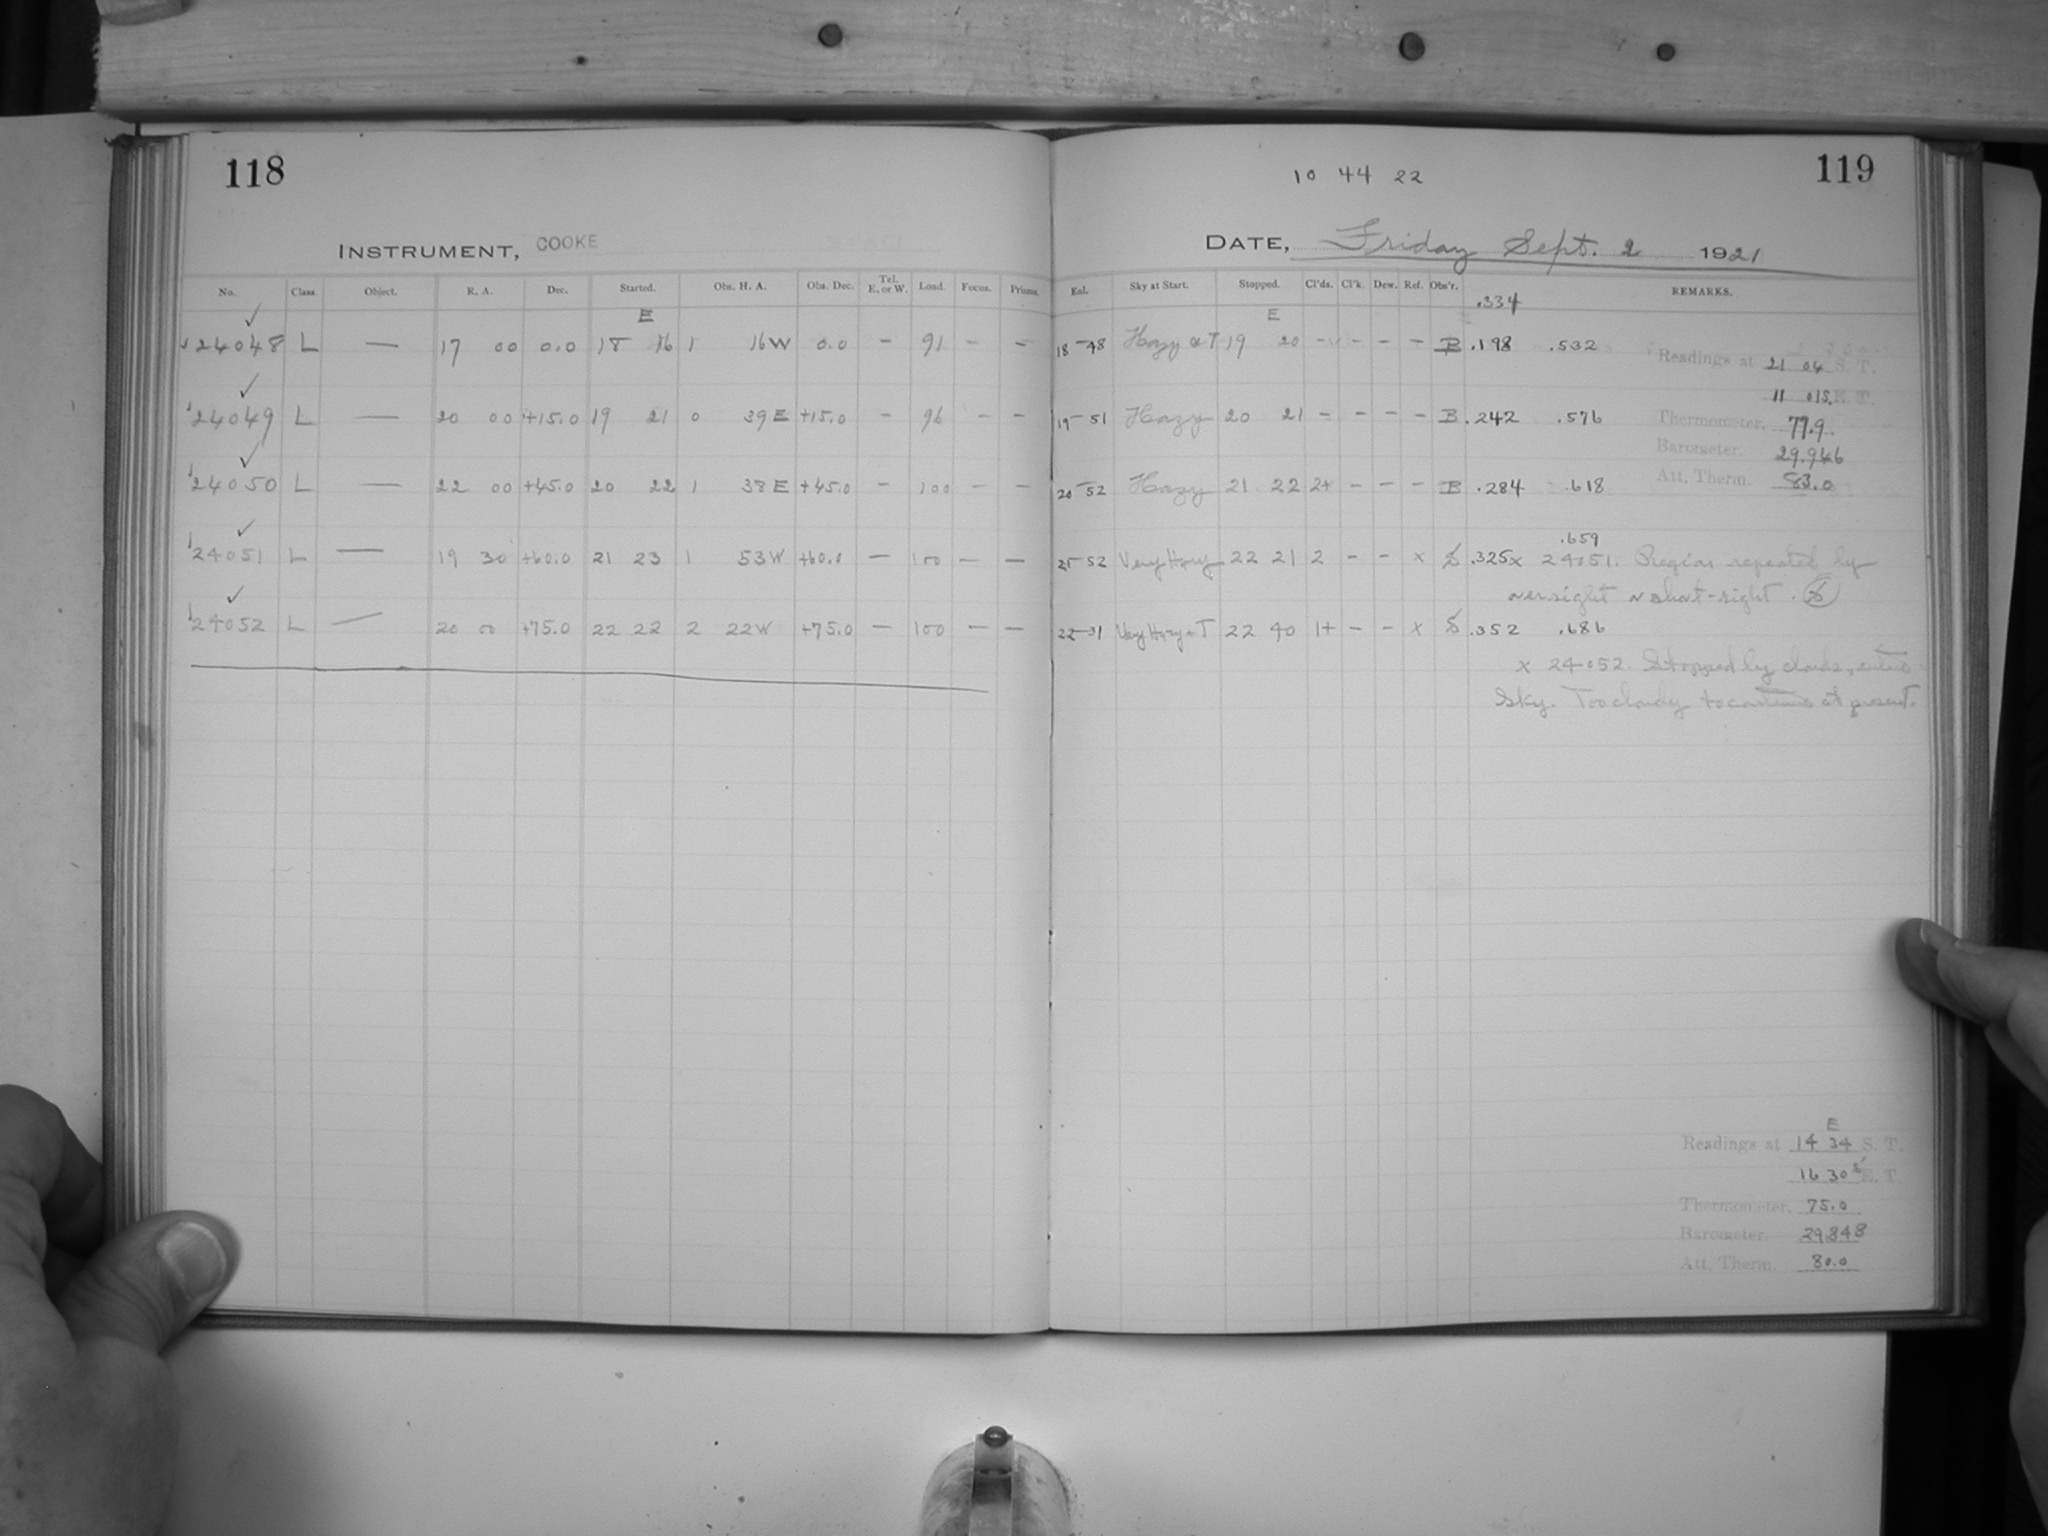 118
INSTRUMENT, COOKE
No. Class. Object. R. A. Dec. Started. Obs. H. A. Obs. Dec. Tel. E. or W. Load. Focus. Prisms.
E
24048 L — 17 00 0.0 18 16 1 16W 0.0 – 91 – –
24049 L — 20 00 +15.0 19 21 0 39E +15.0 – 96 – –
24050 L — 22 00 +45.0 20 22 1 38E +45.0 – 100 – –
24051 L — 19 30 +60.0 21 23 1 53W +60.0 – 100 – –
24052 L — 20 00 +75.0 22 22 2 22W +75.0 – 100 – –
119
10 44 22
DATE, Friday Sept. 2 1921
Exl. Sky at Start. Stopped. Cl'ds. Cl'k. Dew. Ref. Obs'r. REMARKS.
E .334
18-48 Hazy & T 19 20 – – – – B .198 .532
19-51 Hazy 20 21 – – – – B .242 .576
20-52 Hazy 21 22 2+ – – – B .284 .618
.659
21-52 Very Hazy 22 21 2 – – x .325 x 24051. Region repeated by
oversight or short-sight.
22-31 Very Hazy & T 22 40 1+ – – x .352 .686
x 24052. Stopped by clouds, entire
Sky. Too cloudy to continue at present.
Readings at 21 04 S. T.
11 01 E. T.
Thermometer, 77.9
Barometer. 29.946
Att. Therm. 83.0
E
Readings at 14 34 S. T.
16 30 E. T.
Thermometer, 75.0
Barometer. 29.848
Att. Therm. 80.0